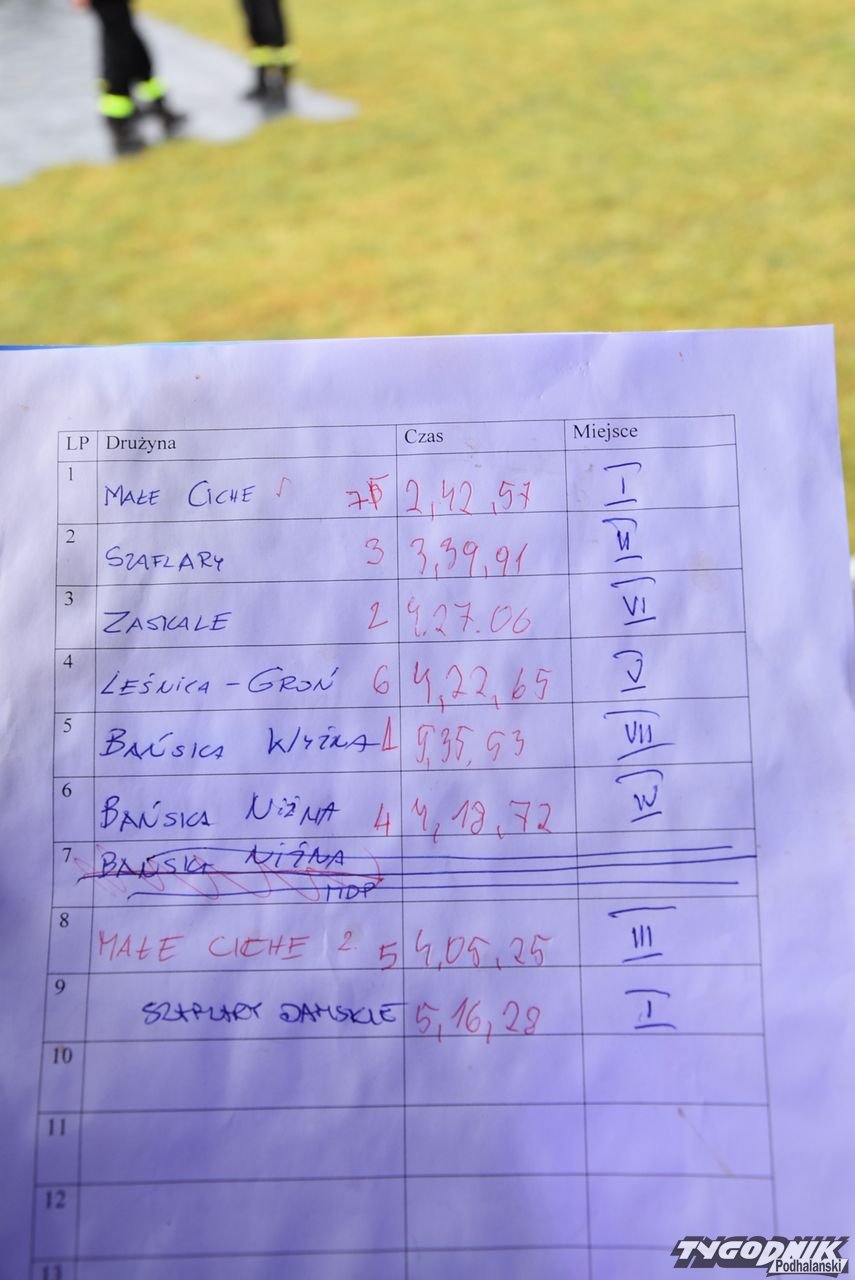 LP Drużyna Czas Miejsce
1 MAŁE CICHE 2,42,57 I
2 SZAFLARY 3 3,39,91 II
3 ZASKALE 2 4.27.06 VI
4 LEŚNICA - GROŃ 6 4,22,65 V
5 BAŃSKA WYŻNA 1 5,35,53 VII
6 BAŃSKA NIŻNA 4 4,18,72 IV
7 BAŃSKA NIŻNA
MDP
8 MAŁE CICHE 2 5 4,05,25 III
9 SZAFLARY DAMSKIE 5,16,28 I
10
11
12
13
TYGODNIK
Podhalański